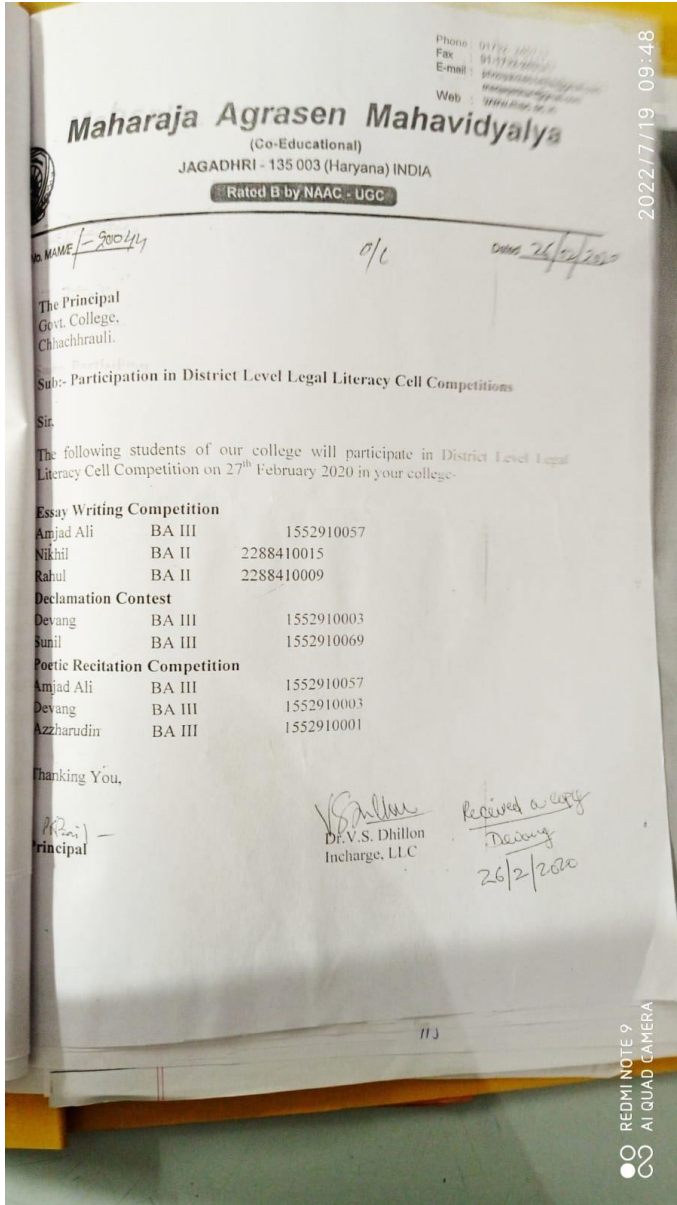 Phone :
Fax :
E-mail :
Web :
Maharaja Agrasen Mahavidyalya
(Co-Educational)
JAGADHRI - 135 003 (Haryana) INDIA
Rated B by NAAC - UGC
No. MAM/E/- O/C Dated 26/02/2020
The Principal
Govt. College,
Chhachhrauli.
Sub:- Participation in District Level Legal Literacy Cell Competitions
Sir,
The following students of our college will participate in District Level Legal
Literacy Cell Competition on 27th February 2020 in your college-
Essay Writing Competition
Amjad Ali BA III 1552910057
Nikhil BA II 2288410015
Rahul BA II 2288410009
Declamation Contest
Devang BA III 1552910003
Sunil BA III 1552910069
Poetic Recitation Competition
Amjad Ali BA III 1552910057
Devang BA III 1552910003
Azzharudin BA III 1552910001
Thanking You,
Principal
Dr.V.S. Dhillon
Incharge, LLC
Received a copy
Devang
26/2/2020
113
2022/7/19 09:48
REDMI NOTE 9
AI QUAD CAMERA